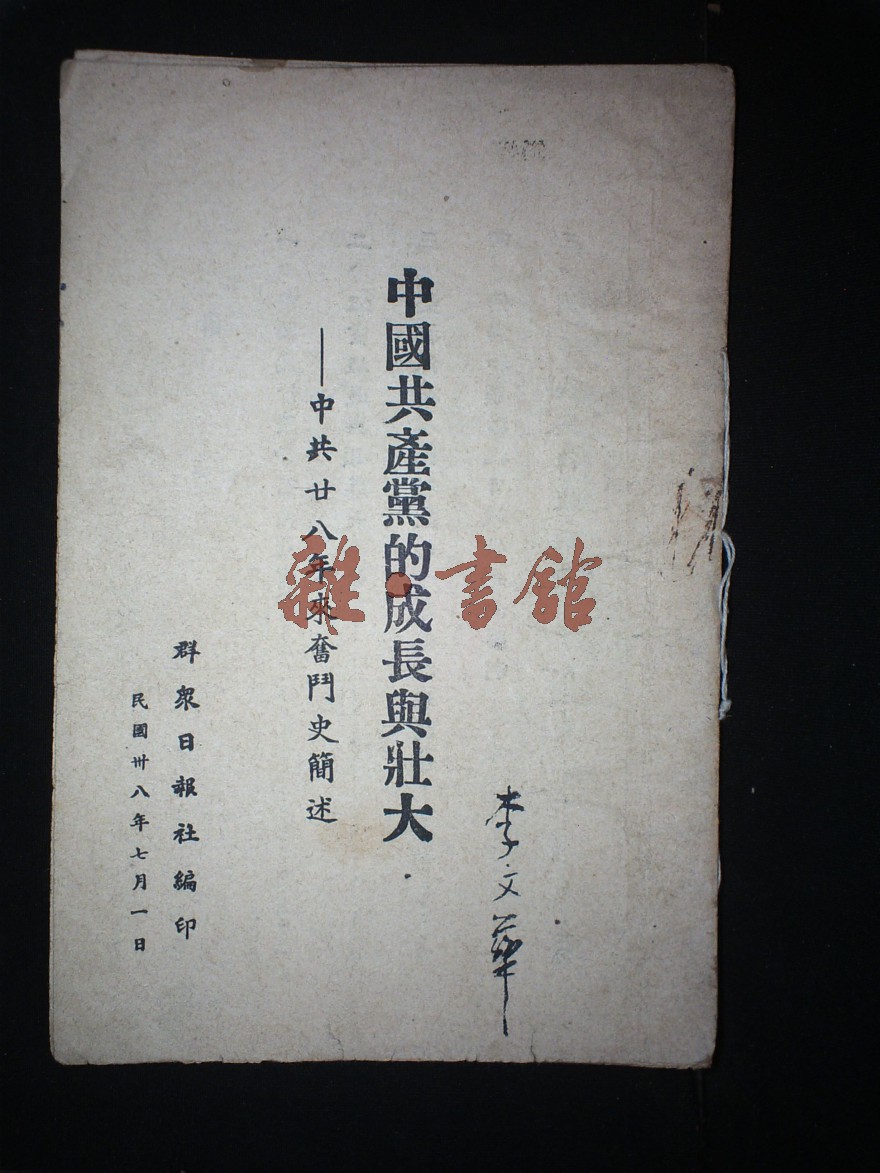 李文華
中國共產黨的成長與壯大
——中共廿八年來奮鬥史簡述
群眾日報社編印
民國卅八年七月一日
雜·書館